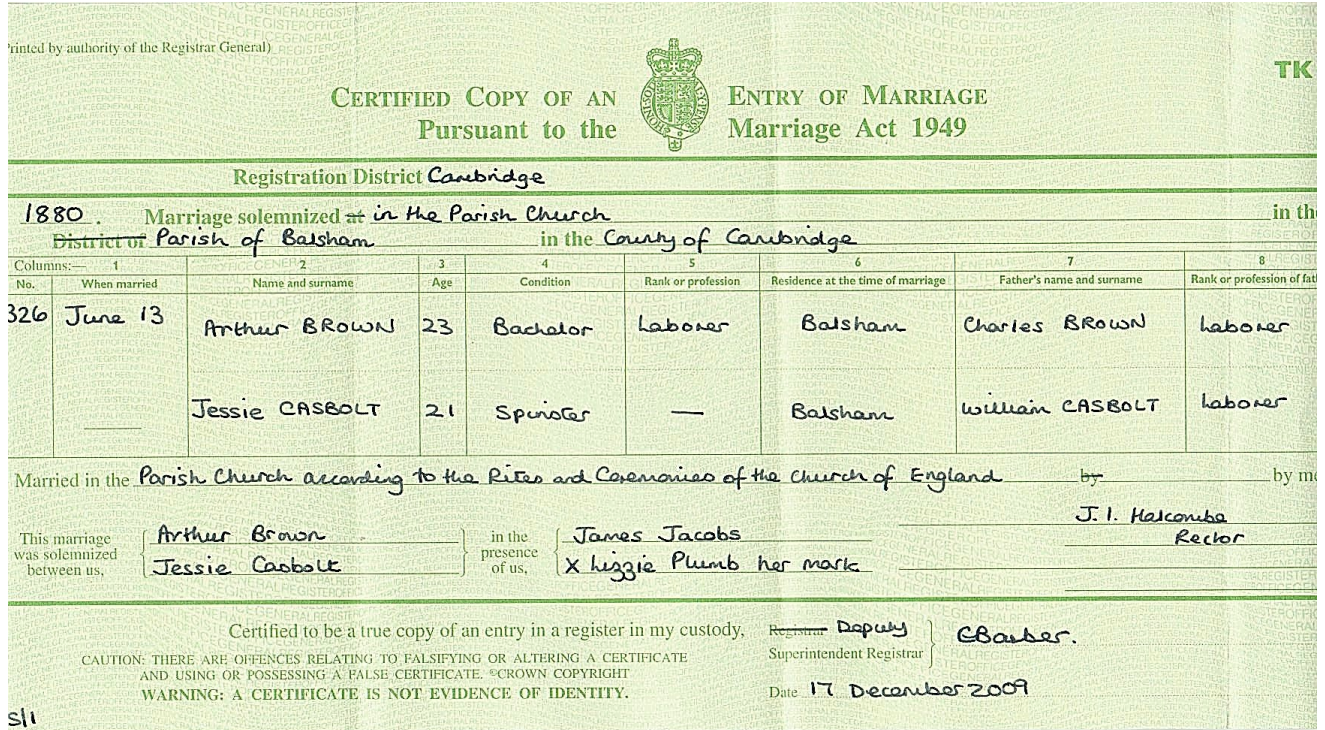 Printed by authority of the Registrar General)
TK
CERTIFIED COPY OF AN ENTRY OF MARRIAGE
Pursuant to the Marriage Act 1949
Registration District Cambridge
1880. Marriage solemnized at in the Parish Church in the
District of Parish of Balsham in the County of Cambridge
Columns:— 1 2 3 4 5 6 7 8
No. When married Name and surname Age Condition Rank or profession Residence at the time of marriage Father's name and surname Rank or profession of fat
326 June 13 Arthur BROWN 23 Bachelor Laborer Balsham Charles BROWN Laborer
Jessie CASBOLT 21 Spinster — Balsham William CASBOLT Laborer
Married in the Parish Church according to the Rites and Ceremonies of the Church of England by by me
J. I. Halcombe
Rector
This marriage was solemnized between us,
Arthur Brown
Jessie Casbolt
in the presence of us,
James Jacobs
X Lizzie Plumb her mark
Certified to be a true copy of an entry in a register in my custody, Registrar Deputy
Superintendent Registrar
CBarber.
CAUTION: THERE ARE OFFENCES RELATING TO FALSIFYING OR ALTERING A CERTIFICATE
AND USING OR POSSESSING A FALSE CERTIFICATE. ©CROWN COPYRIGHT
WARNING: A CERTIFICATE IS NOT EVIDENCE OF IDENTITY.
Date 17 December 2009
S/1